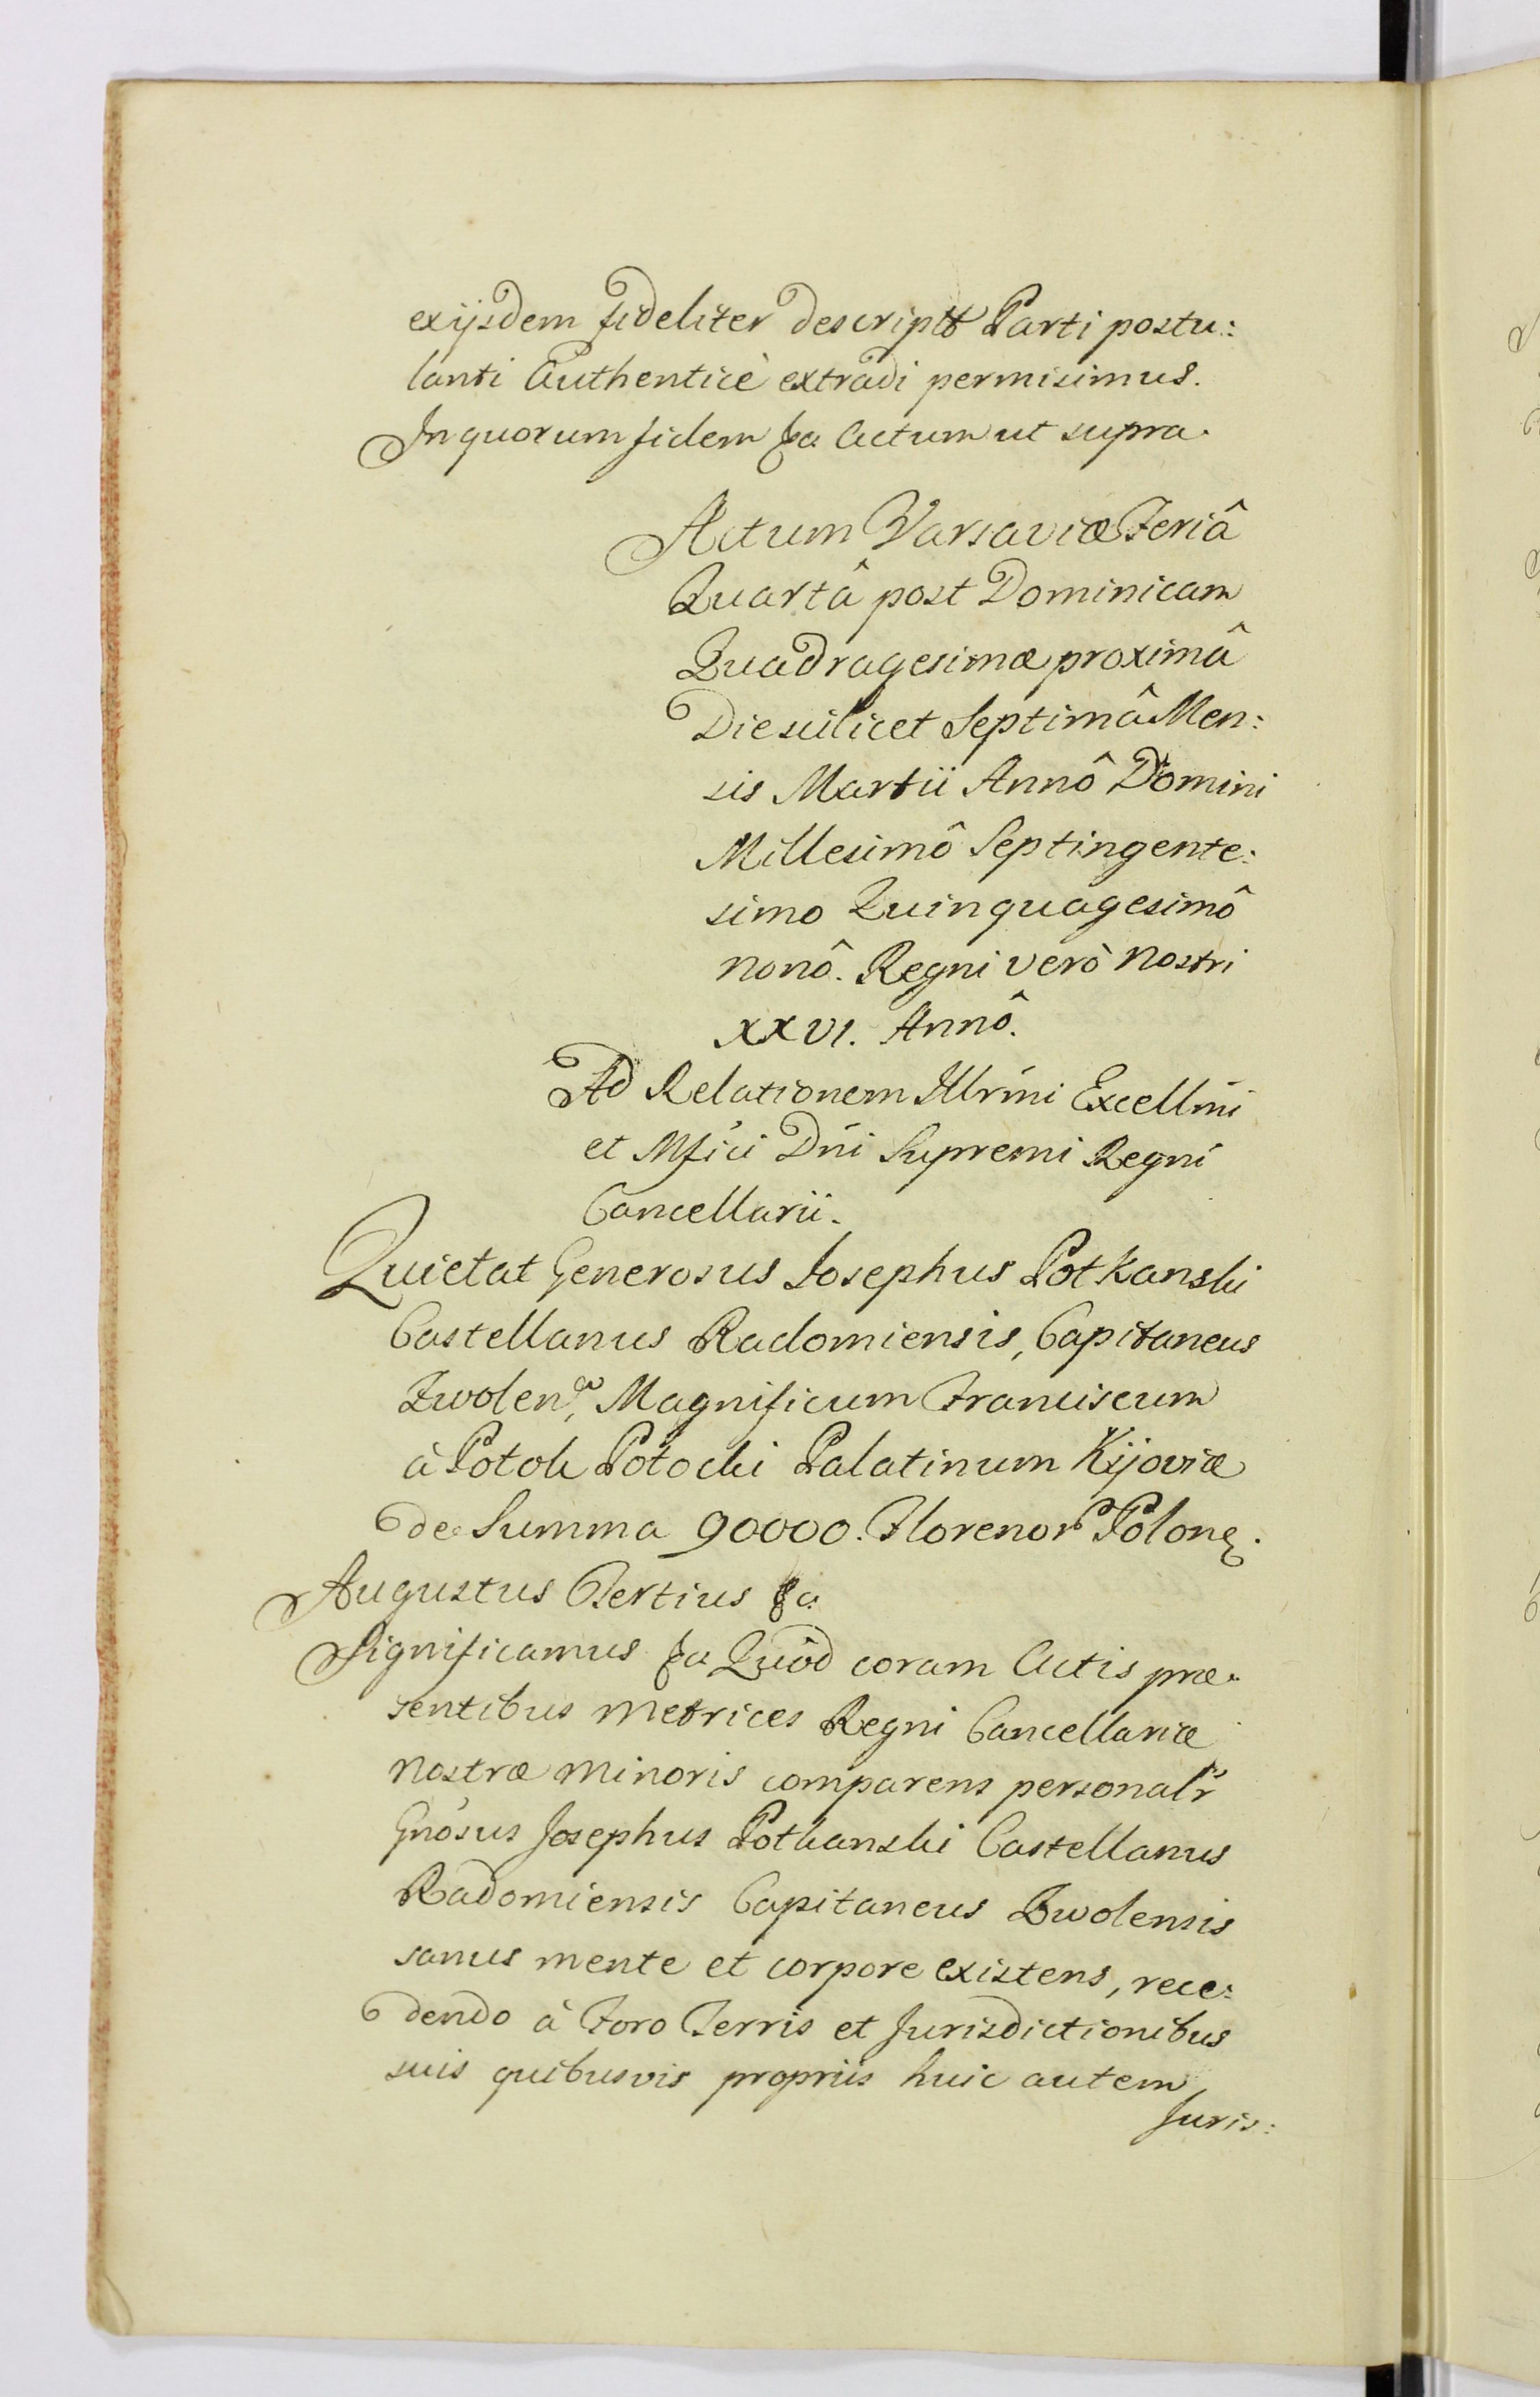 exijsdem fideliter descriptt Parti postu:
lanti Authenticè extradi permisimus.
In quorum fidem &a Actum ut supra.
Actum Varsaviæ Feriâ
Quartâ post Dominicam
Quadragesimæ proximâ
Die scilicet Septimâ Men:
sis Martii Annô Domini
Millesimô Septingente:
simo Quinquagesimô
nonô. Regni verò nostri
XXVI. Annô.
Ad Relationem Illrmi Excellmi
et Mfici Dni Supremi Regni
Cancellarii.
Quietat Generosus Josephus Potkanski
Castellanus Radomiensis, Capitaneus
Zwolen, Magnificum Franciscum
à Potok Potocki Palatinum Kijoviæ
de Summa 90000. Florenor Polon.
Augustus Tertius &a
Significamus &a Quôd coram Actis præ:
sentibus Metrices Regni Cancellariæ
nostræ minoris comparens personalr
Gnosus Josephus Potkanski Castellanus
Radomiensis Capitaneus Zwolensis
sanus mente et corpore existens, rece:
dendo à Foro Terris et Jurisdictionibus
suis quibusvis propriis huic autem
Juris: